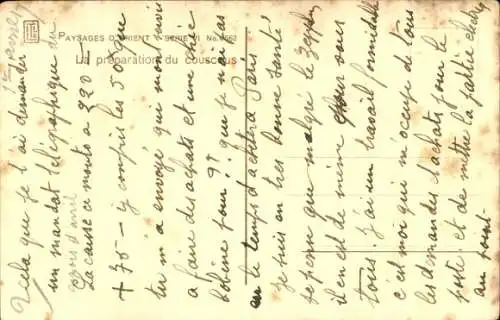 PAYSAGES D'ORIENT - SERIE VI No 6562
La préparation du couscous
cela que je t'ai demander
un mandat télégraphique du
La cause ce monte a 220 F
+ 75 - y compris les 50 que
tu m'a envoyé qui mont suivi
a faire des achats et une chic
que je n'ai pas
eu le temps d'acheter a Paris.
Je suis en tres bonne santé
je pense que malgré le
il en est de même pour vous
tous. j'ai un travail formidable
c'est moi qui m'occupe de tous
les demandes d'achats pour le
poste et de mettre la partie
au point.